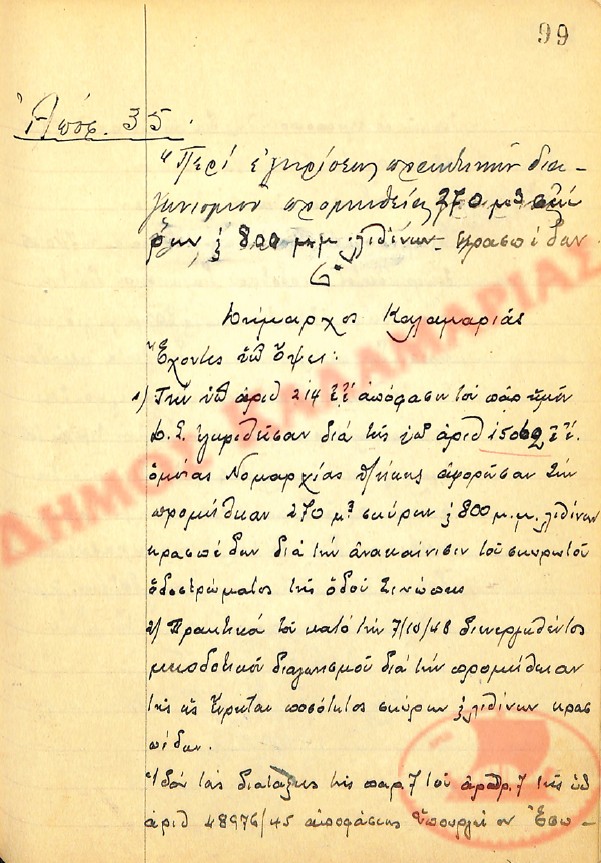 99
Ἀπόφ. 35.
"Περί ἐγκρίσεως πρακτικῶν δια-
γωνισμοῦ προμηθείας 270 μ³ σκύ
ρων ξ 800 μ.μ. λιθίνων κρασπέδων
Ὁ
Δήμαρχος Καλαμαριᾶς
Ἔχοντες ὑπ' ὄψει:
1) Τήν ὑπ' ἀριθ 214 ἀπόφασιν τοῦ παρ' ἡμῖν
Δ.Σ. ἐγκριθεῖσαν διά τῆς ὑπ' ἀριθ 15062
ὁμοίας Νομαρχίας Θ/νίκης ἀφορῶσαν τήν
προμήθειαν 270 μ³ σκύρων ξ 800 μ.μ. λιθίνων
κρασπέδων διά τήν ἀνακαίνισιν τοῦ σκυρωτοῦ
ὁδοστρώματος τῆς ὁδοῦ Σινώπης
2) Πρακτικά τοῦ κατά τήν 7/10/48 διενεργηθέντος
μειοδοτικοῦ διαγωνισμοῦ διά τήν προμήθειαν
τῆς ὡς εἴρηται ποσότητος σκύρων ξ λιθίνων κρασ
πέδων.
Ἰδόν τάς διατάξεις τῆς παρ. 7 τοῦ ἄρθρ. 7 τῆς ὑπ'
ἀριθ 48976/45 ἀποφάσεως Ὑπουργείου Ἐσω-
ΔΗΜΟΣ ΚΑΛΑΜΑΡΙΑΣ